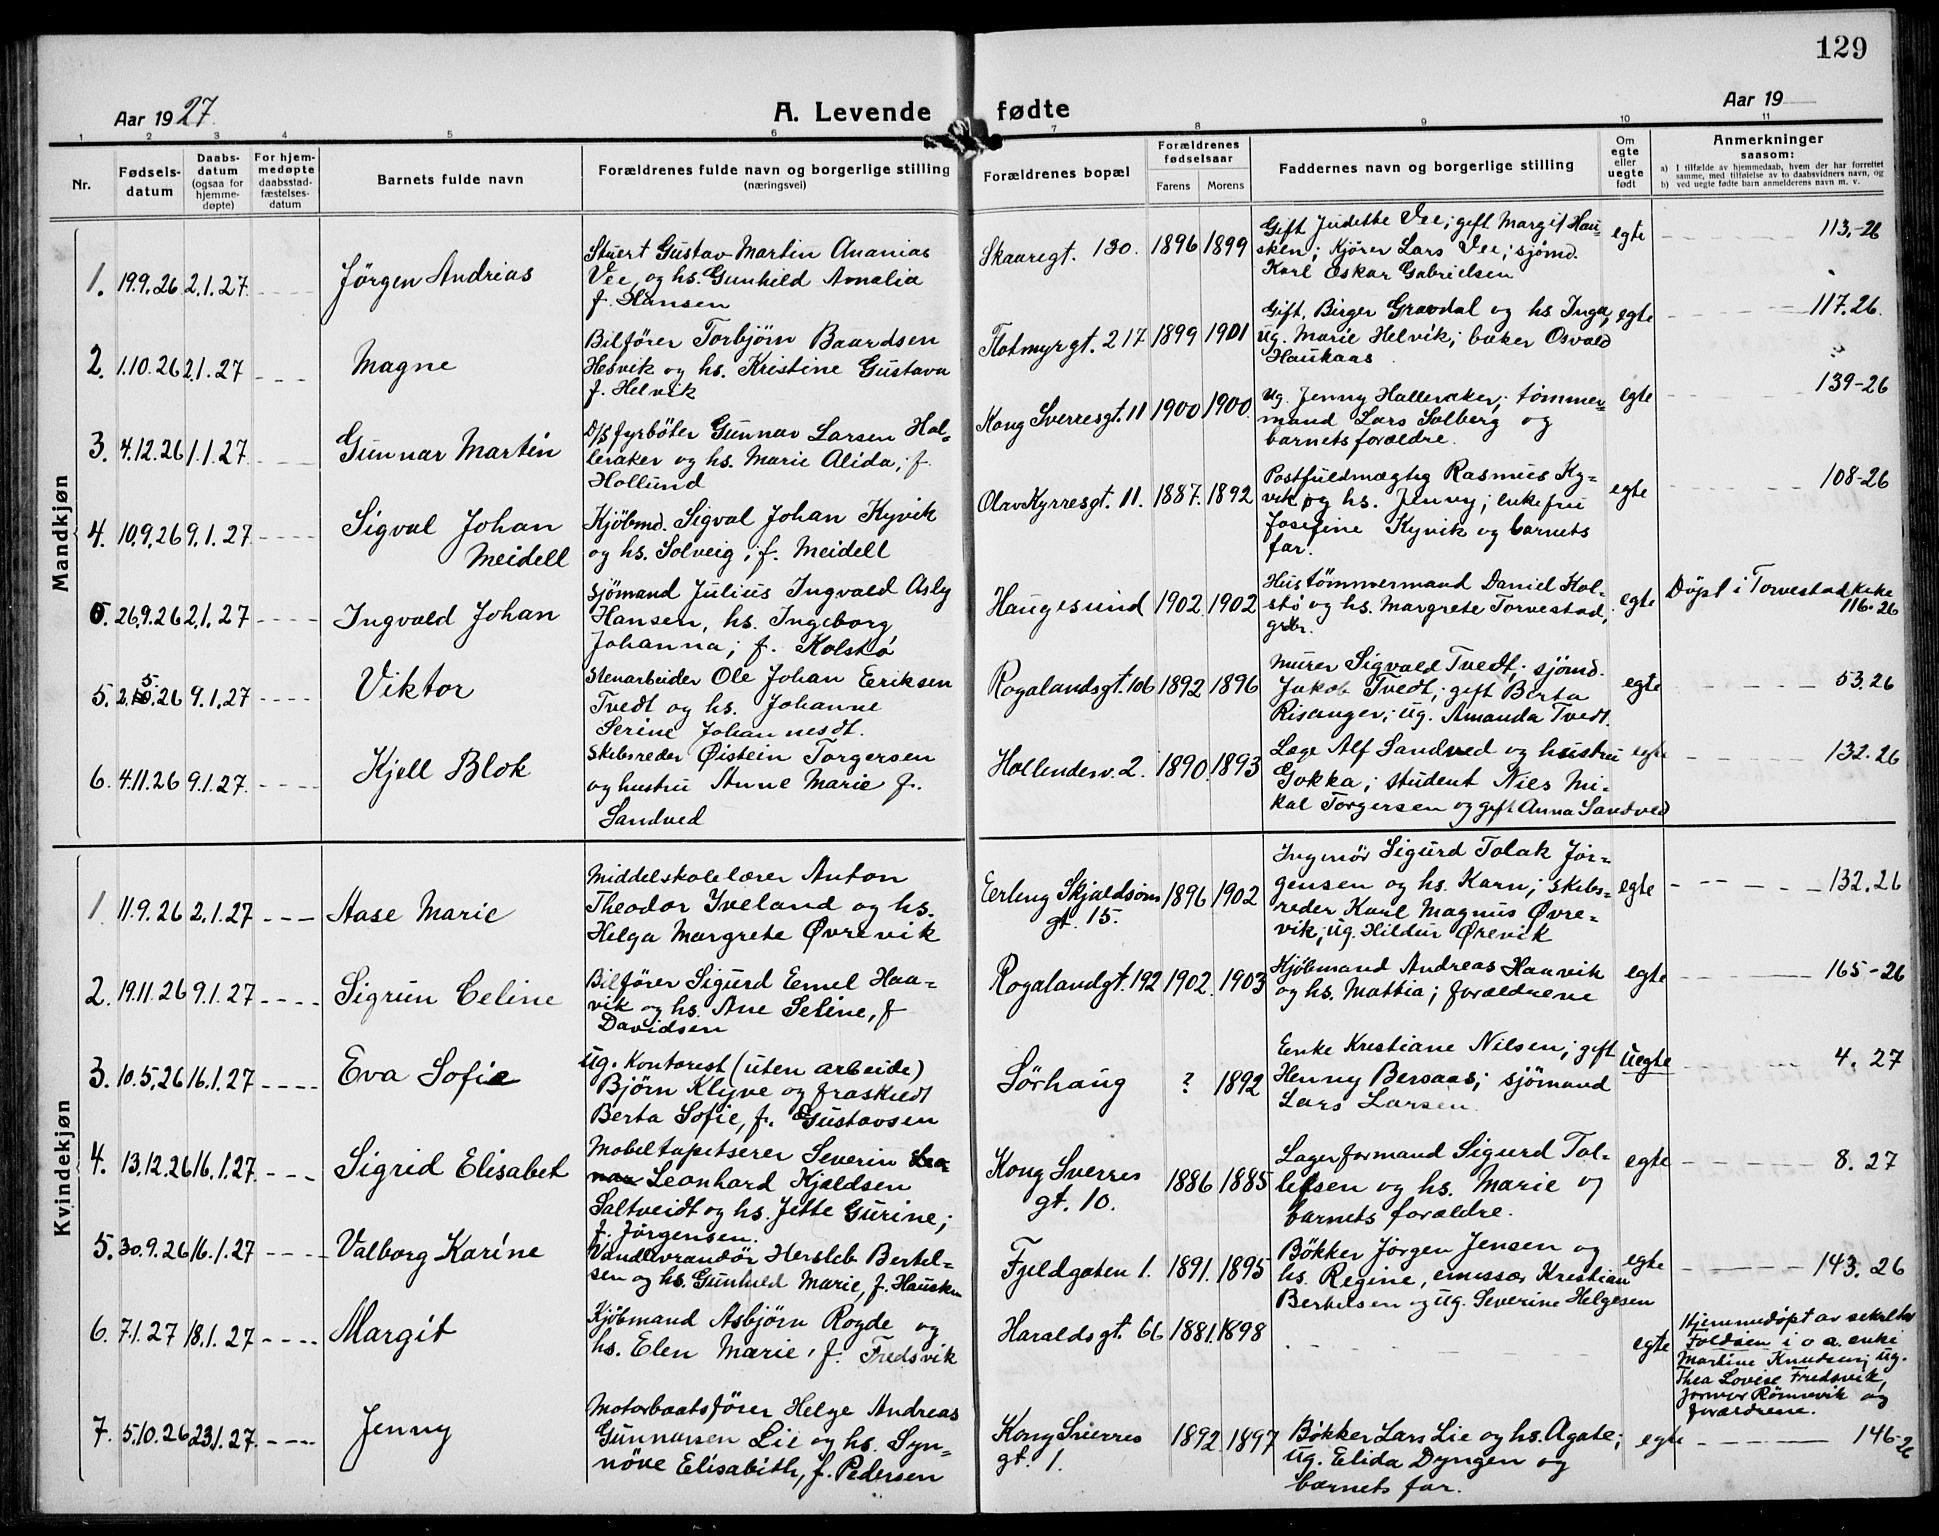 129
Aar 1927
A. Levende fødte
Aar 19
1 2 3 4 5 6 7 8 9 10 11
Nr.
Fødsels-
datum
Daabs-
datum
(ogsaa for
hjemme-
døpte)
For hjem-
medøpte
daabsstad-
fæstelses-
datum
Barnets fulde navn
Forældrenes fulde navn og borgerlige stilling
(næringsvei)
Forældrenes bopæl
Forældrenes
fødselsaar
Farens Morens
Faddernes navn og borgerlige stilling
Om
egte
eller
uegte
født
Anmerkninger
saasom:
a) I tilfælde av hjemmedaab, hvem der har forrettet
samme, med tilføielse av to daabsvidners navn, og
b) ved uegte fødte barn anmelderens navn m. v.
Mandkjøn
1. 19.9.26 2.1.27 Jörgen Andreas
Stuert Gustav Martin Ananias
Vee og hs. Gunhild Amalia
f. Hansen
Skaaregt. 130. 1896 1899
Gift Judethe Vee; gift Margit Hau-
sken; Kjörer Lars Vee; sjömd.
Karl Oskar Gabrielsen
egte 113.-26
2. 1.10.26 2.1.27 Magne
Bilförer Torbjörn Baardsen
Hesvik og hs. Kristine Gustava
f. Helvik
Flotmyrgt. 217 1899 1901
Gift. Birger Gravdal og hs Inga,
ug. Marie Helvik; baker Osvald
Haukaas
egte 117.26.
3. 4.12.26 1.1.27 Gunnar Martin
D/S fyrböter Gunnar Larsen Hal-
leraker og hs. Marie Alida, f.
Hollund
Kong Sverresgt. 11 1900 1900.
Ug. Jenny Halleraker; tömmer-
mand Lars Solberg og
barnets forældre.
egte 139-26
4. 10.9.26 9.1.27 Sigval Johan
Meidell
Kjöbmd. Sigval Johan Kyvik
og hs. Solveig, f. Meidell
Olav Kyrresgt. 11. 1887. 1892
Postfuldmægtig Rasmus Ky-
vik og hs. Jenny; enkefru
Josefine Kyvik og barnets
far.
egte 108-26
6. 26.9.26 2.1.27 Ingvald Johan
Sjömand Julius Ingvald Asly
Hansen, hs. Ingeborg
Johanna; f. Kolstö
Haugesund 1902. 1902
Hustömmermand Daniel Kol-
stö og hs. Margrete Torvestad,
grbr.
egte Döpt i Torvestad kirke
116.26
5. 2.5.26 9.1.27 Viktor
Stenarbeider Ole Johan Eeriksen
Tvedt og hs. Johanne
Serine Johannesdt.
Rogalandsgt. 106 1892 1896
Murer Sigvald Tvedt; sjömd.
Jakob Tvedt; gift Berta
Risanger; ug. Amanda Tvedt.
egte 53.26
6. 4.11.26 9.1.27 Kjell Blok
Skibsreder Øistein Torgersen
og hustru Anne Marie f.
Sandved
Hollenderv. 2. 1890. 1893
Læge Alf Sandved og hustru
Gokka; student Niels Mi-
kal Torgersen og gift Anna Sandved
egte 132.26
Kvindekjøn
1 11.9.26 2.1.27 Aase Marie
Middelskolelærer Anton
Theodor Iveland og hs.
Helga Margrete Øvrevik
Eerling Skjaldsöns
gt. 15. 1896 1902
Ingeniör Sigurd Tolak Jör-
gensen og hs. Karn; skibs-
reder Karl Magnus Øvre-
vik; ug. Hildur Ørevik
egte 132.26
2. 19.11.26 9.1.27 Sigrun Celine
Bilförer Sigurd Emel Haa-
vik og hs. Ane Seline, f
Davidsen
Rogalandgt. 192 1902. 1903
Kjöbmand Andreas Haavik
og hs. Mattia; forældrene
egte 165-26
3. 10.5.26 16.1.27 Eva Sofie
Ug. Kontorist (uten arbeide)
Björn Klyve og fraskildt
Berta Sofie, f. Gustavsen
Sörhaug ? 1892
Enke Kristiane Nilsen; gift
Henny Bersaas; sjömand
Lars Larsen
uegte 4. 27
4. 13.12.26 16.1.27. Sigrid Elisabet
Mobeltapetserer Severin
Leonhard Kjældsen
Saltveidt og hs. Jette Gurine;
f. Jörgensen.
Kong Sverres
gt. 10. 1886 1885
Lagerformand Sigurd Tol-
lefsen og hs. Marie og
barnets forældre.
egte 8. 27
5. 30.9.26 16.1.27 Valborg Karine
Vandlevrandör Hersleb Bertel-
sen og hs. Gunhild Marie, f. Hausken
Fjeldgaten 1. 1891. 1895
Bökker Jörgen Jensen og
hs. Regine, emissær Kristian
Bertelsen og ug. Severine Helgesen
egte 143. 26
6. 7.1.27 18.1.27 Margit
Kjöbmand Asbjörn Rogde og
hs. Elen Marie, f. Fredsvik
Haraldsgt. 66 1881. 1898
egte
Hjemmedöpt av
Foldöen i o a. enke
Martine Knudsen; ug.
Thea Lovise Fredsvik,
Rönnevik og
forældrene.
7. 5.10.26 23.1.27. Jenny
Motorbaatsförer Helge Andreas
Gunnarsen Lie og hs. Syn-
növe Elisabeth, f. Pedersen
Kong Sverres
gt. 1. 1892. 1897
Bökker Lars Lie og hs. Agate;
ug. Elida Dyngen og
barnets far.
egte 146-26